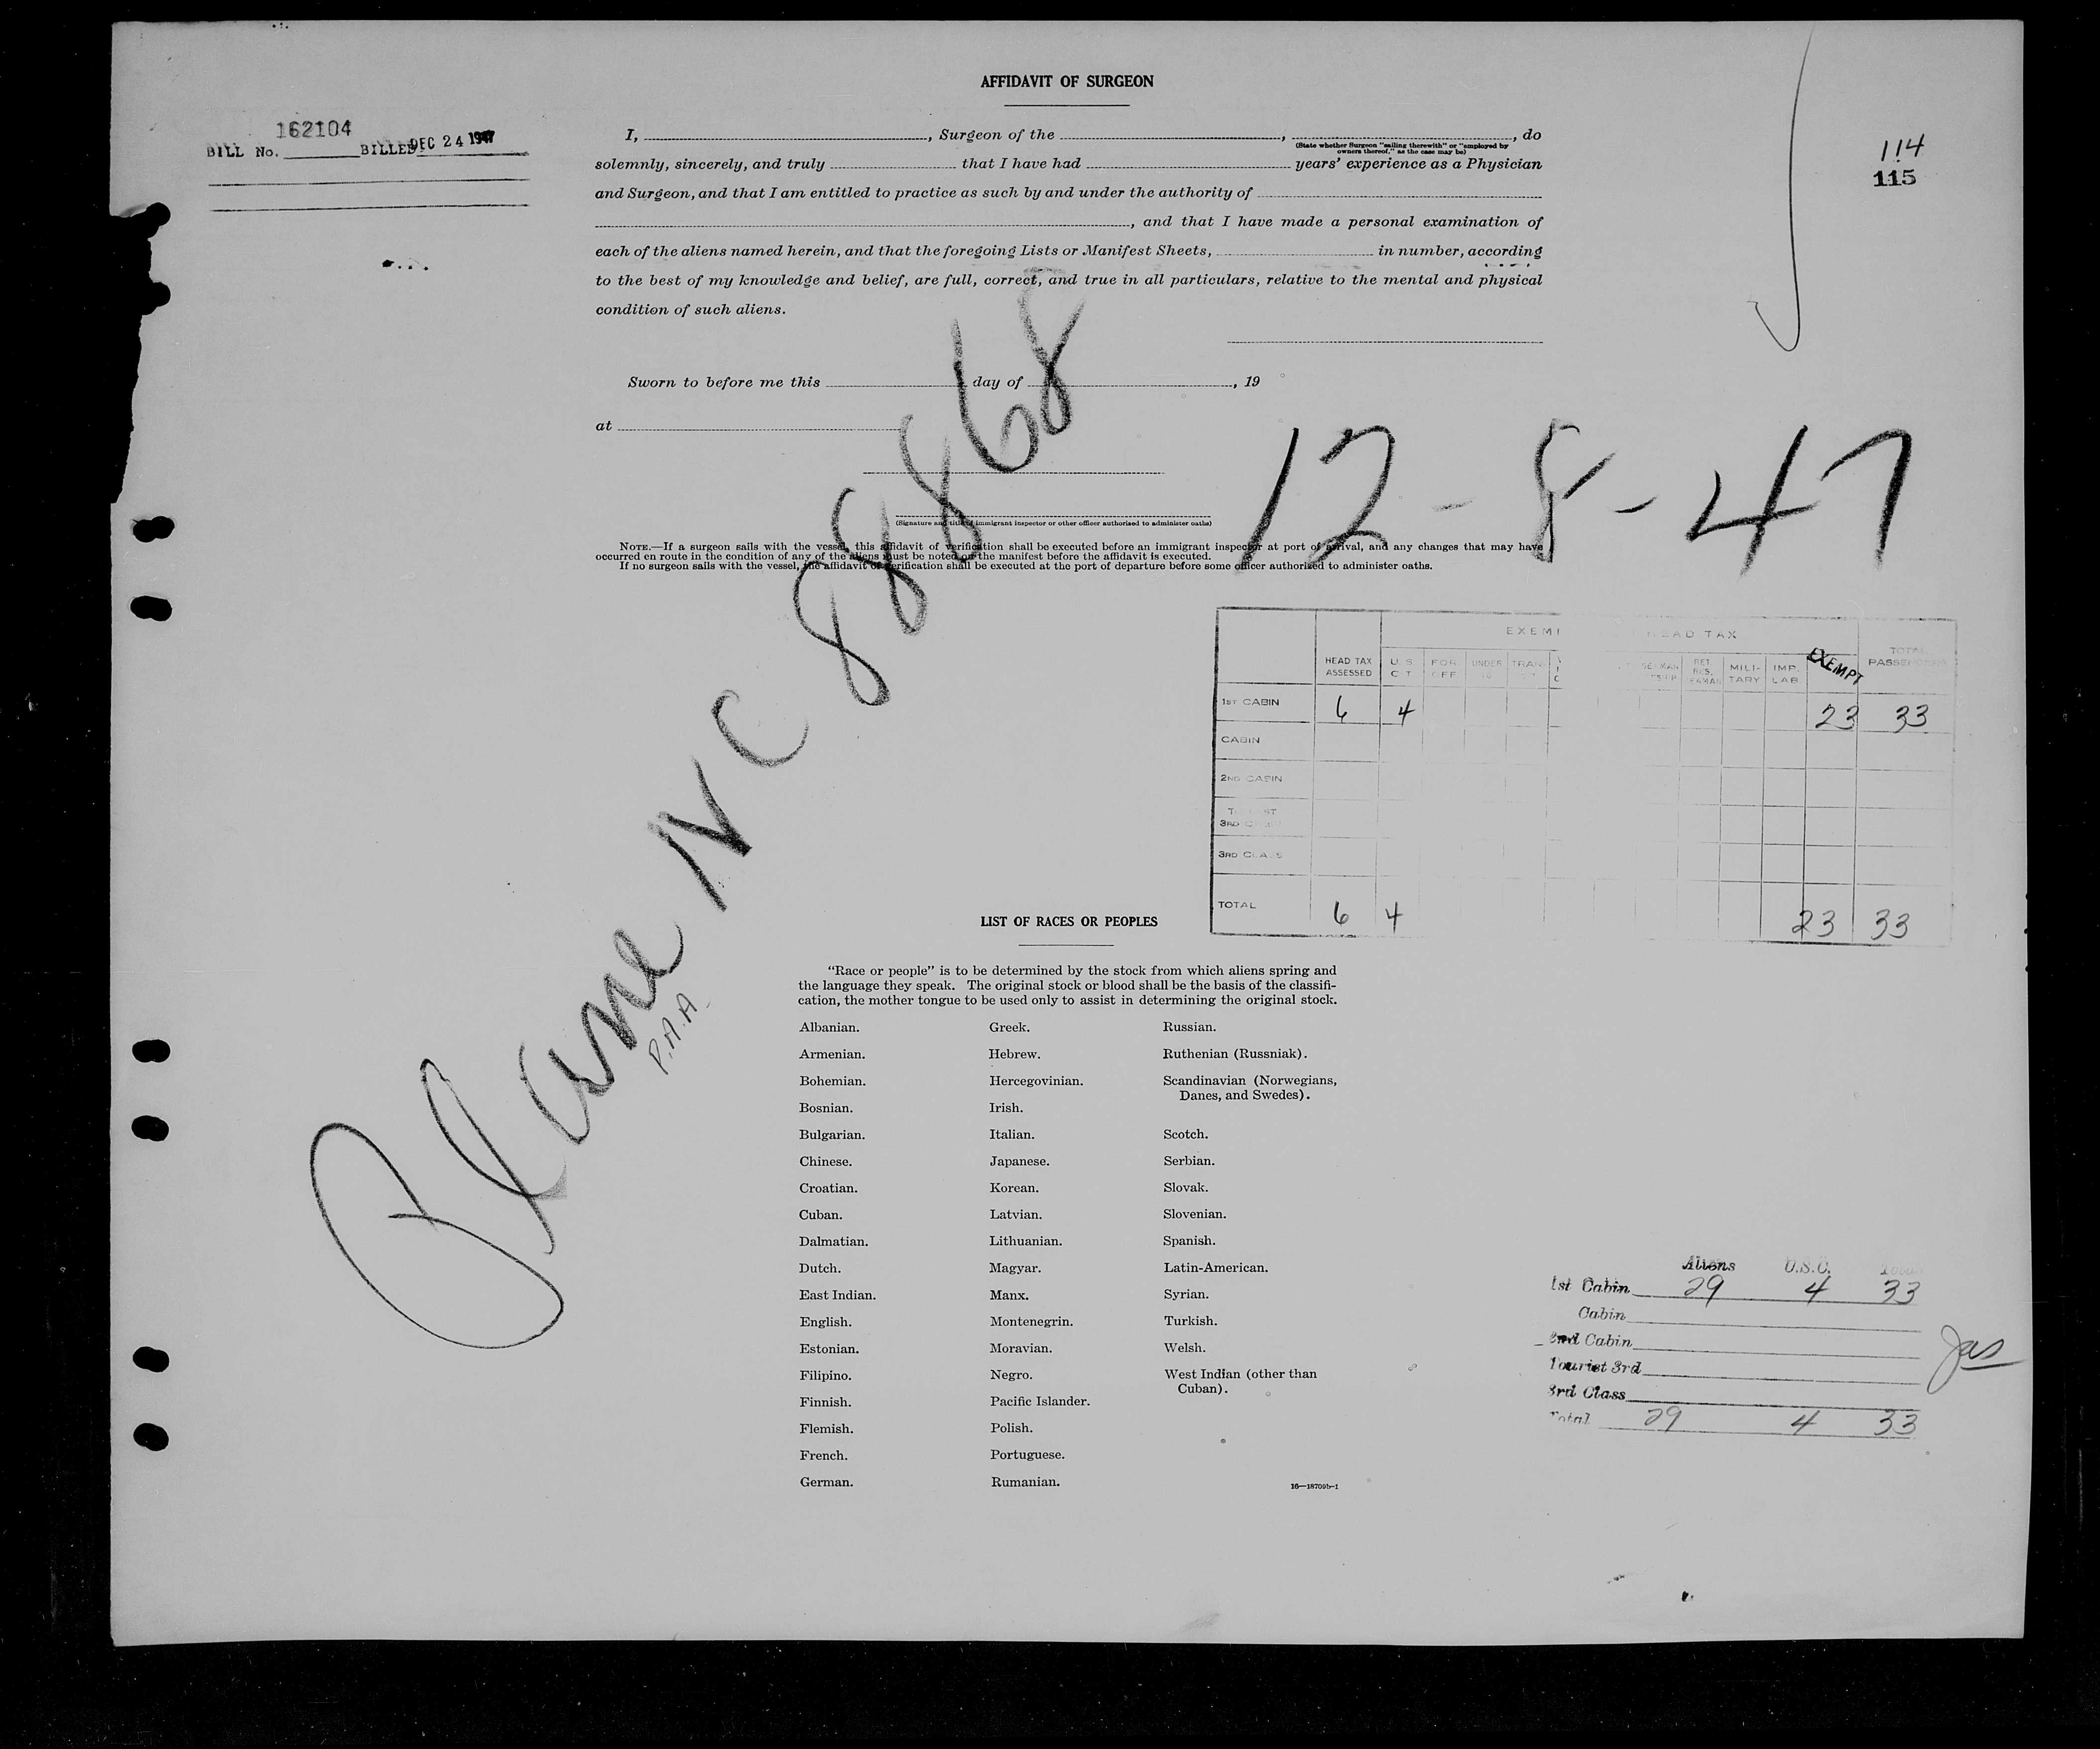 AFFIDAVIT OF SURGEON
BILL No. 162104 BILLED DEC 24 1947
114
115
I, , Surgeon of the , , do
(State whether Surgeon "sailing therewith" or "employed by
owners thereof," as the case may be)
solemnly, sincerely, and truly that I have had years' experience as a Physician
and Surgeon, and that I am entitled to practice as such by and under the authority of
, and that I have made a personal examination of
each of the aliens named herein, and that the foregoing Lists or Manifest Sheets, in number, according
to the best of my knowledge and belief, are full, correct, and true in all particulars, relative to the mental and physical
condition of such aliens.
Sworn to before me this day of , 19
at
(Signature and title of immigrant inspector or other officer authorized to administer oaths)
NOTE.—If a surgeon sails with the vessel, this affidavit of verification shall be executed before an immigrant inspector at port of arrival, and any changes that may have
occurred en route in the condition of any of the aliens must be noted on the manifest before the affidavit is executed.
If no surgeon sails with the vessel, the affidavit of verification shall be executed at the port of departure before some officer authorized to administer oaths.
12-8-47
Plane NC 88868
P.A.A.
HEAD TAX
HEAD TAX ASSESSED U.S. FOR OFF UNDER MILITARY IMP. LAB EXEMPT TOTAL PASSENGERS
1ST CABIN 6 4 23 33
CABIN
2ND CABIN
3RD CLASS
TOTAL 6 4 23 33
LIST OF RACES OR PEOPLES
"Race or people" is to be determined by the stock from which aliens spring and
the language they speak. The original stock or blood shall be the basis of the classifi-
cation, the mother tongue to be used only to assist in determining the original stock.
Albanian. Greek. Russian.
Armenian. Hebrew. Ruthenian (Russniak).
Bohemian. Hercegovinian. Scandinavian (Norwegians,
Danes, and Swedes).
Bosnian. Irish.
Bulgarian. Italian. Scotch.
Chinese. Japanese. Serbian.
Croatian. Korean. Slovak.
Cuban. Latvian. Slovenian.
Dalmatian. Lithuanian. Spanish.
Dutch. Magyar. Latin-American.
East Indian. Manx. Syrian.
English. Montenegrin. Turkish.
Estonian. Moravian. Welsh.
Filipino. Negro. West Indian (other than
Cuban).
Finnish. Pacific Islander.
Flemish. Polish.
French. Portuguese.
German. Rumanian.
16—18709b-1
Aliens U.S.C. Total
1st Cabin 29 4 33
Cabin
2nd Cabin
Tourist 3rd
3rd Class
Total 29 4 33